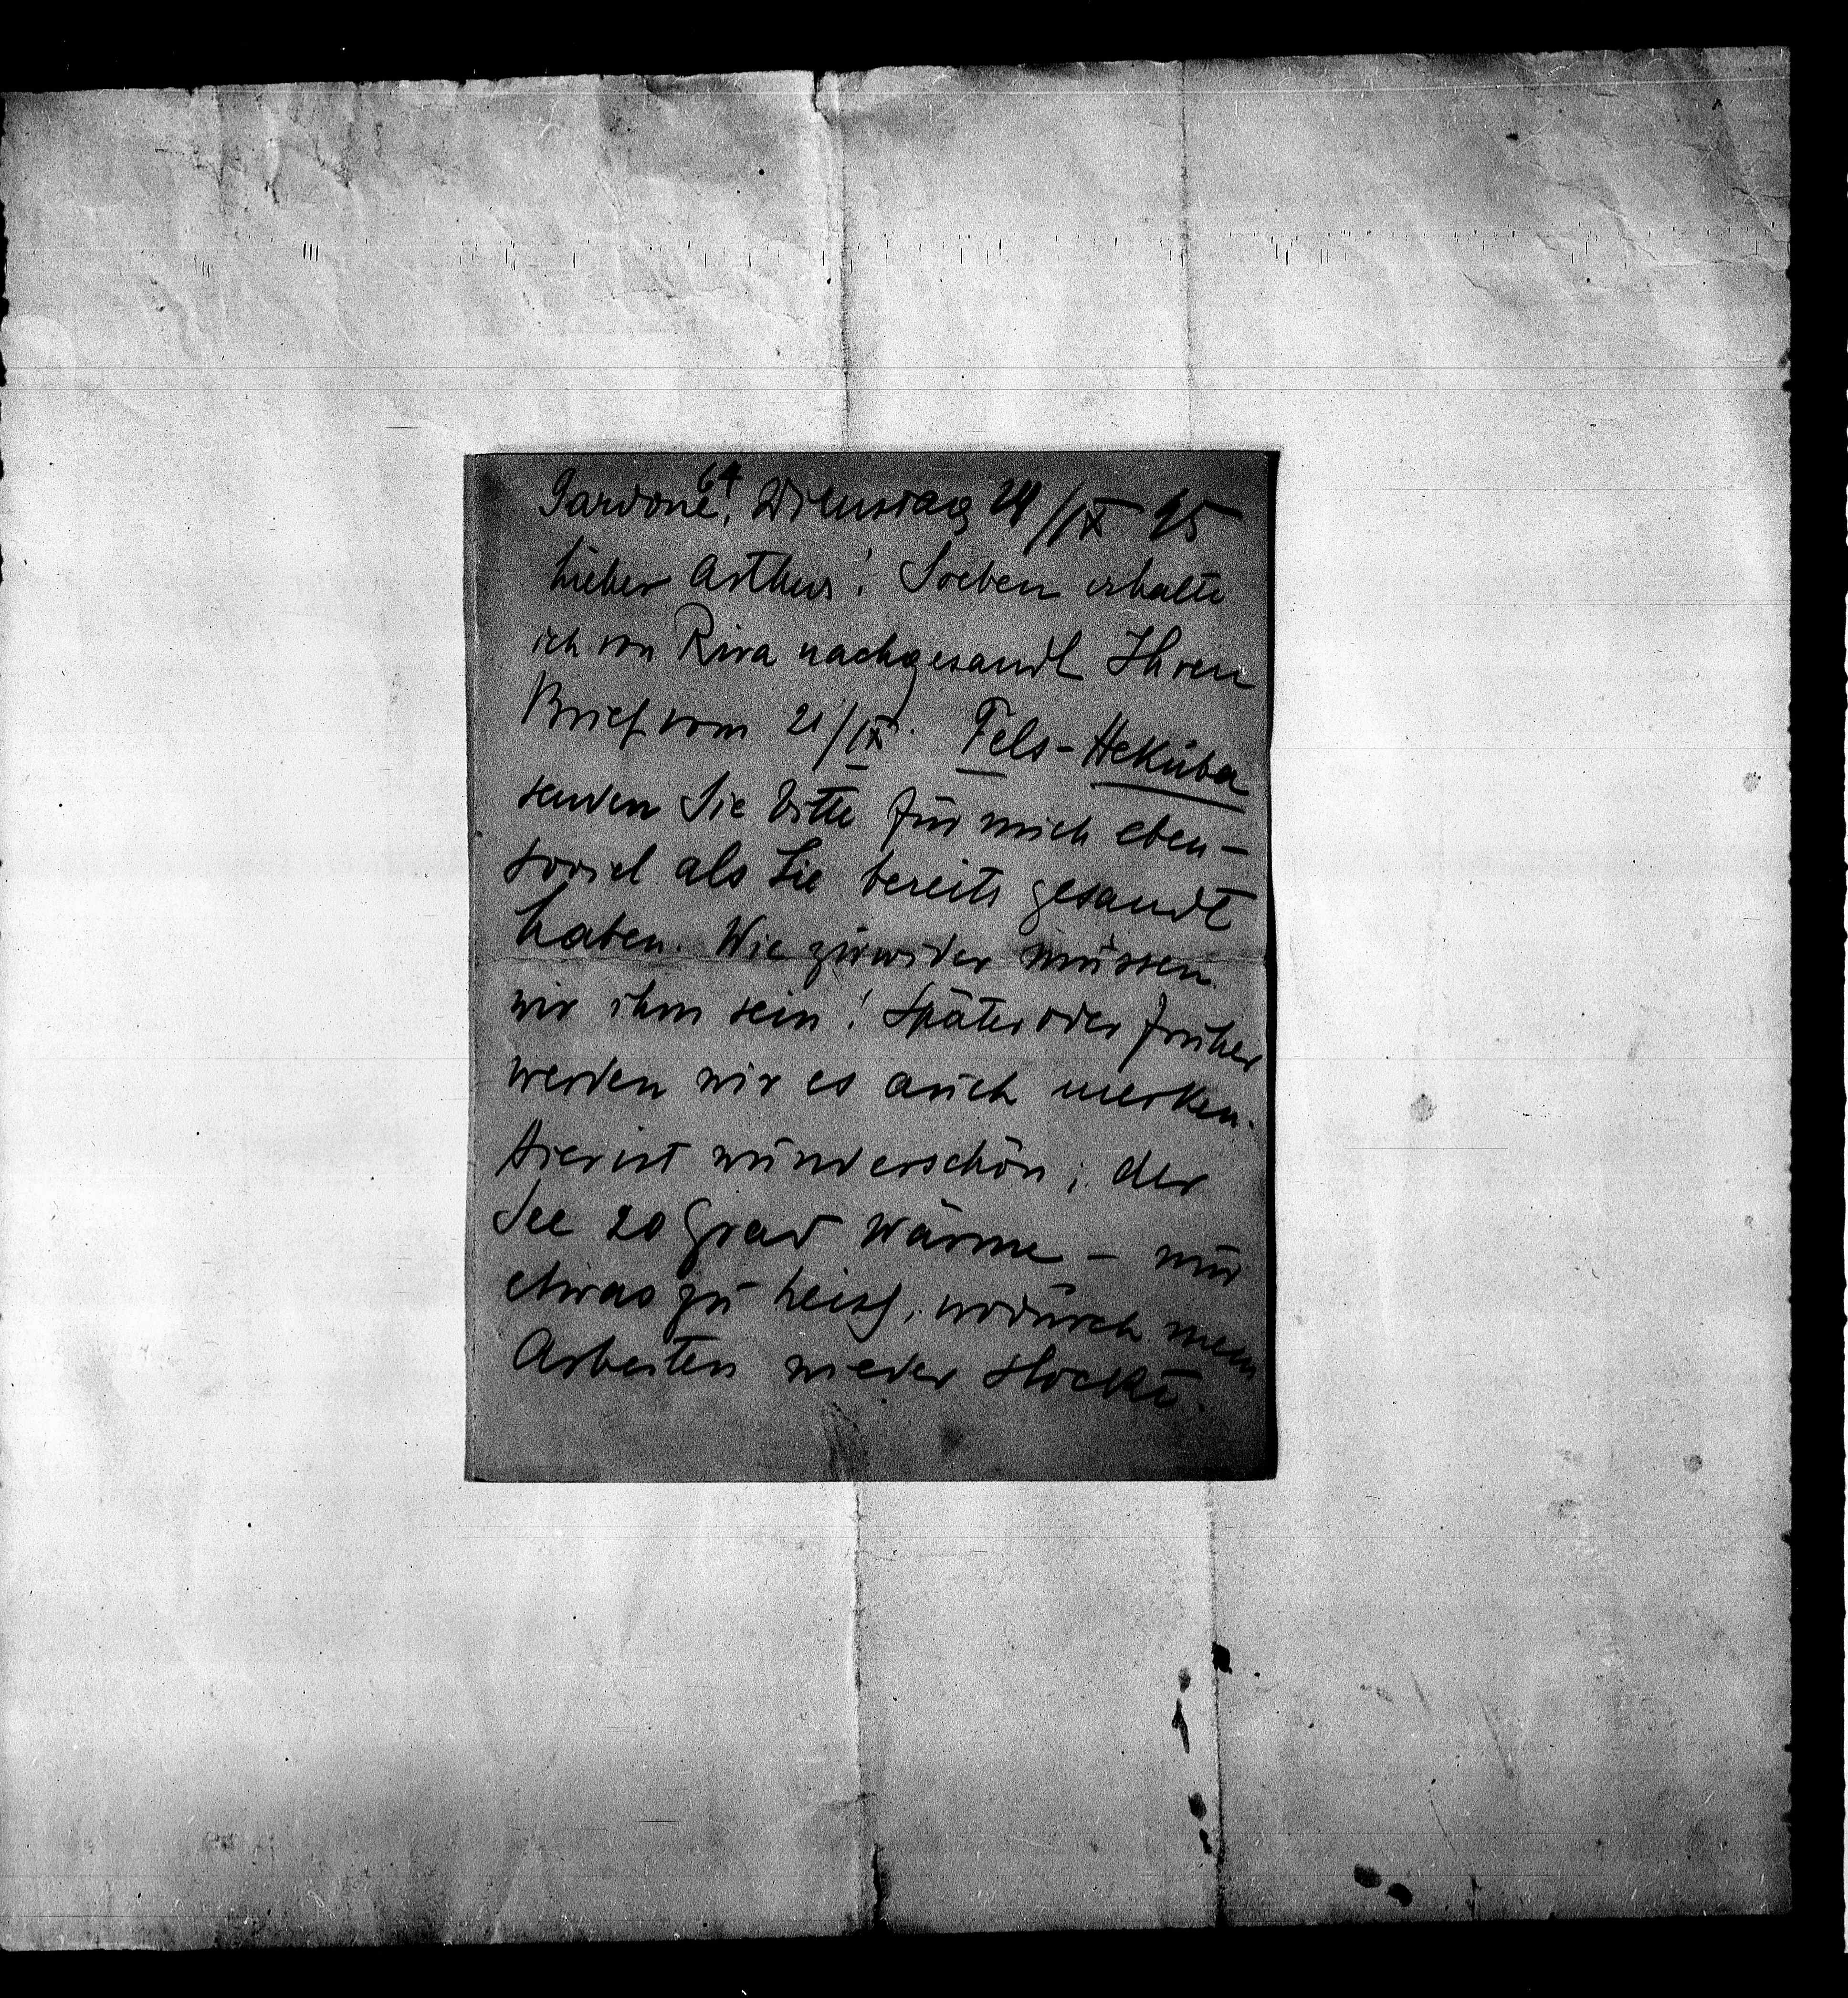 64
Gardone, Dienstag 24/IX 95
Lieber Arthur! Soeben erhalte
ich von Riva nachgesandt Ihren
Brief vom 21/IX. Fels-Hekuba
senden Sie bitte für mich eben-
soviel als Sie bereits gesandt
haben. Wie zuwider müssen
wir ihm sein! Später oder früher
werden wir es auch merken.
Hier ist wunderschön; der
See 20 Grad Wärme – nur
etwas zu heiß, wodurch mein
Arbeiten wieder stockt.